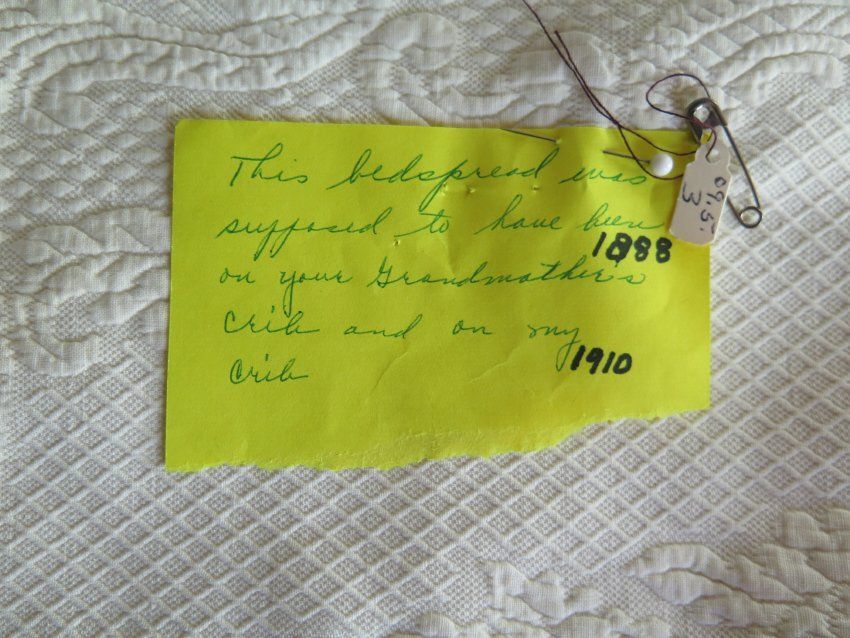 This bedspread was
supposed to have been
1888
on your Grandmother's
crib and on my
1910
crib
09.5.
3